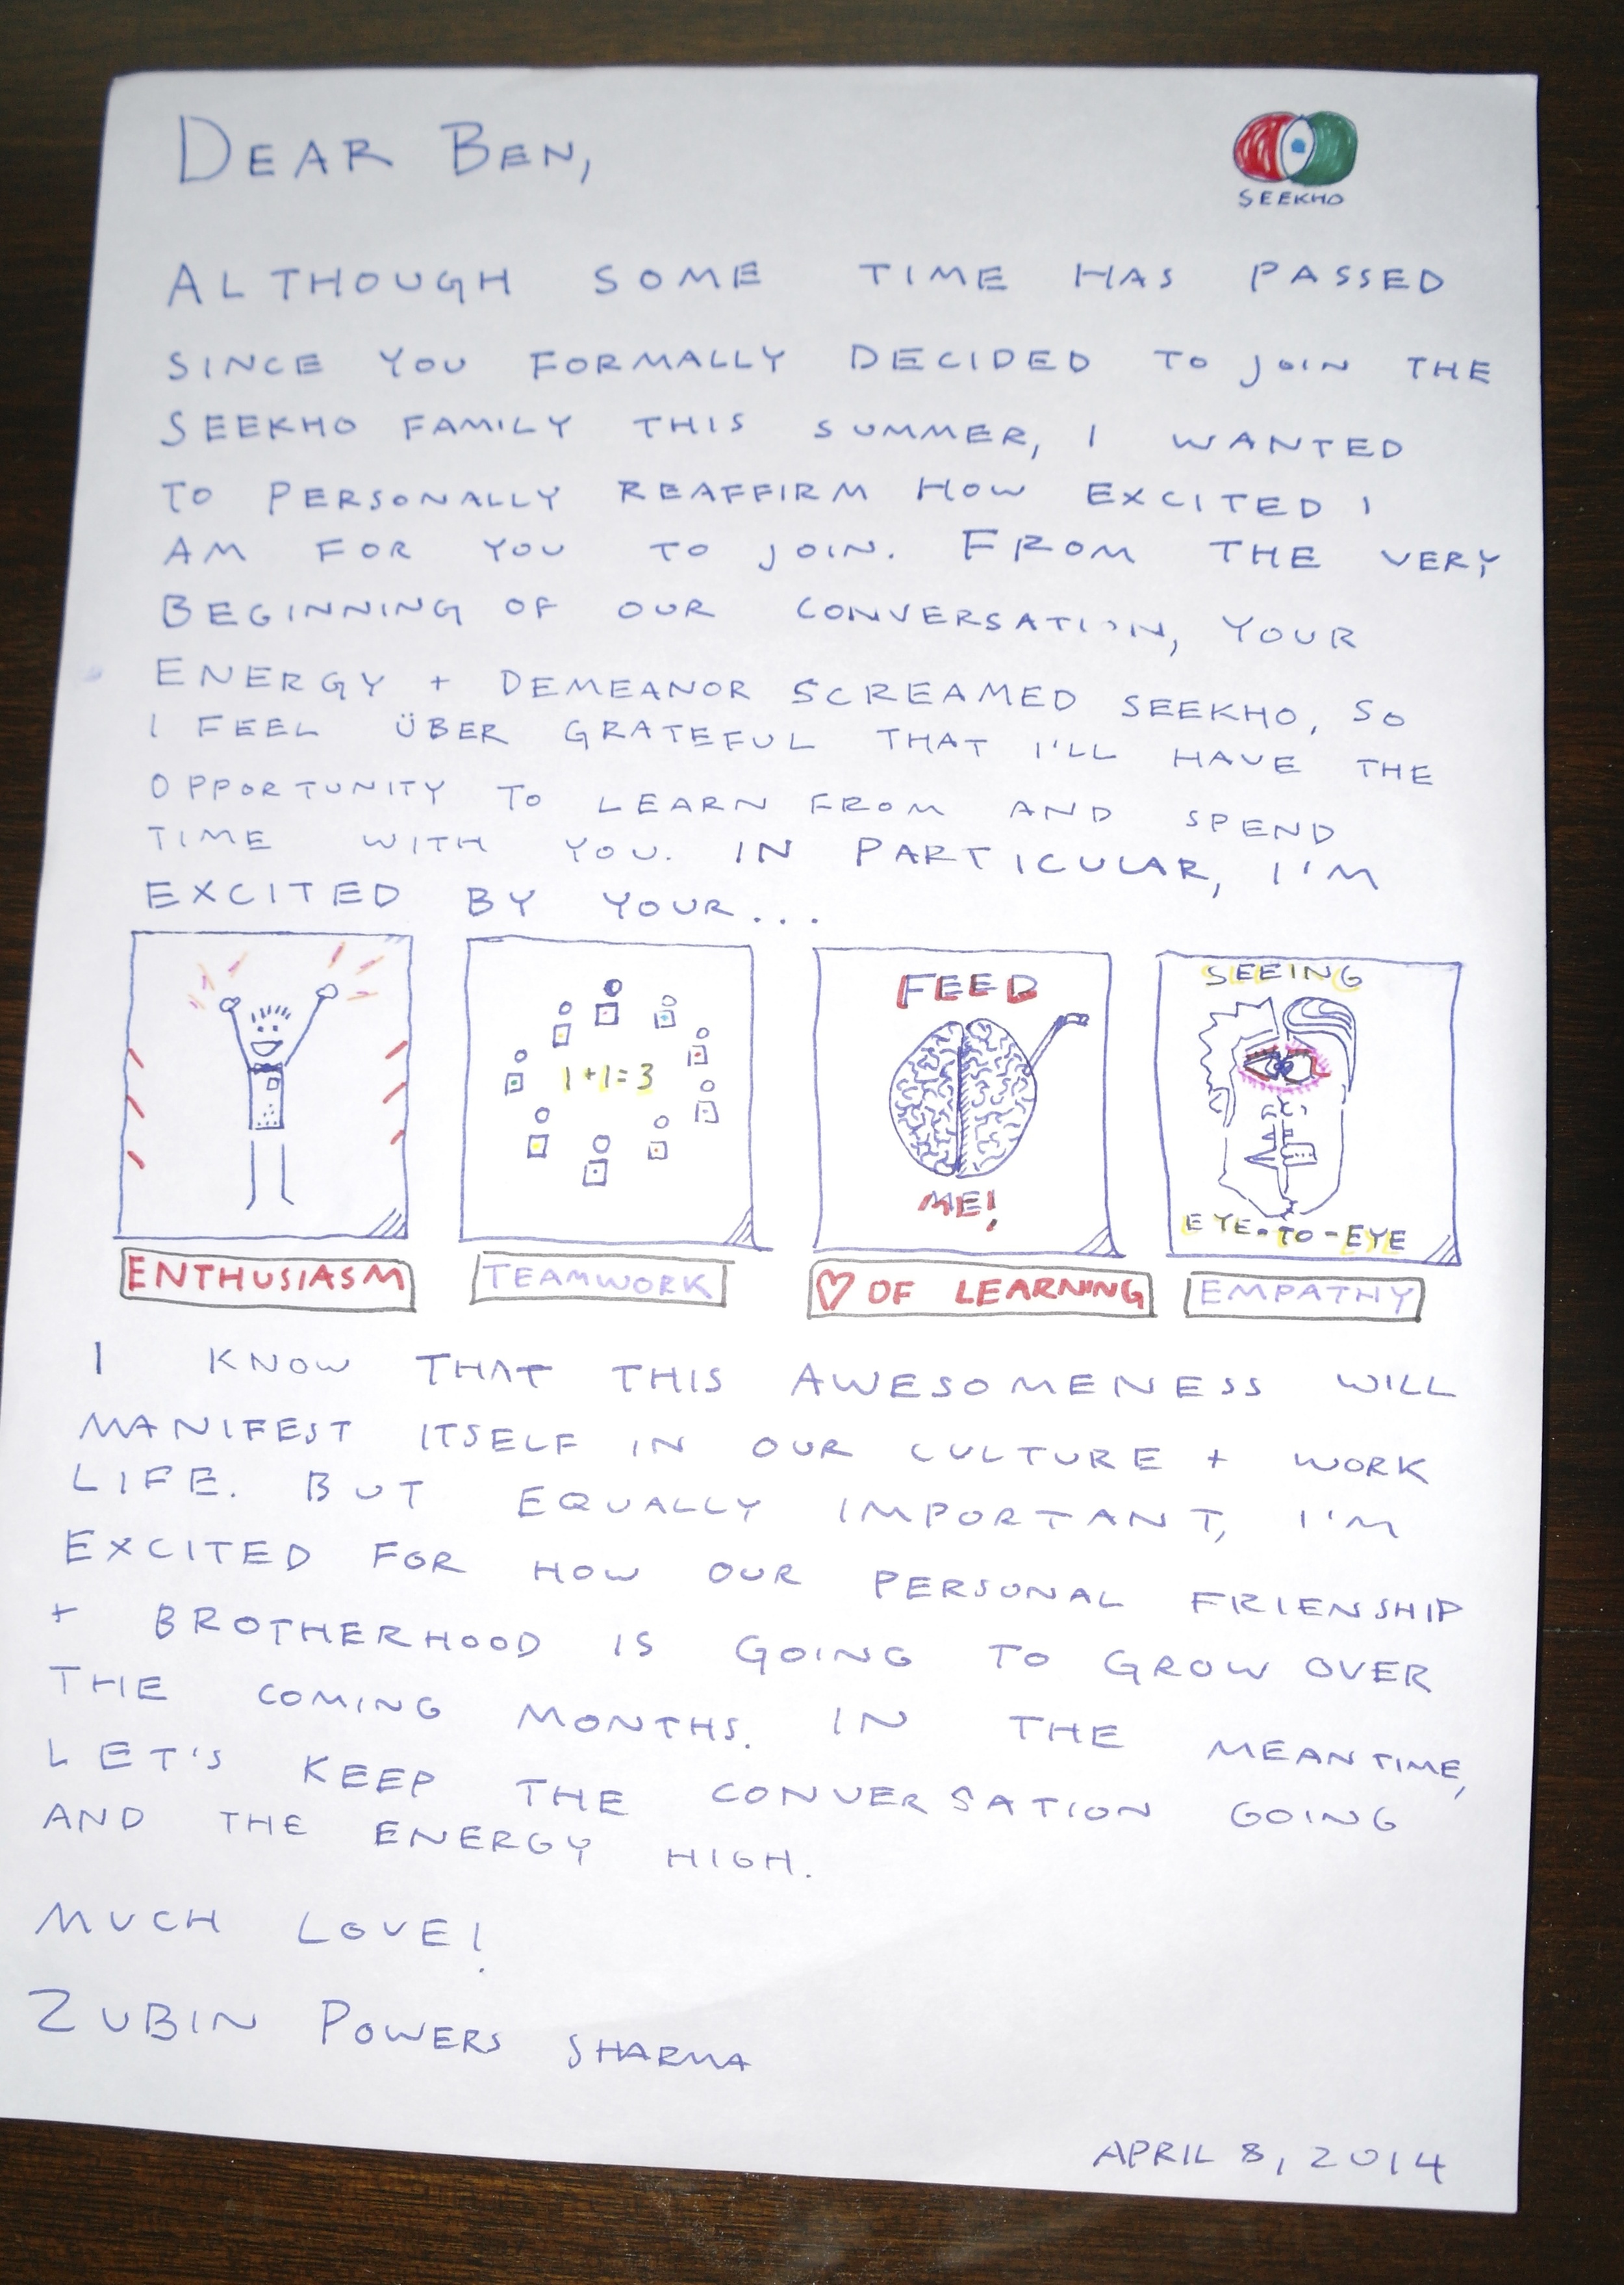 DEAR BEN,
SEEKHO
ALTHOUGH SOME TIME HAS PASSED
SINCE YOU FORMALLY DECIDED TO JOIN THE
SEEKHO FAMILY THIS SUMMER, I WANTED
TO PERSONALLY REAFFIRM HOW EXCITED I
AM FOR YOU TO JOIN. FROM THE VERY
BEGINNING OF OUR CONVERSATION, YOUR
ENERGY + DEMEANOR SCREAMED SEEKHO, SO
I FEEL ÜBER GRATEFUL THAT I'LL HAVE THE
OPPORTUNITY TO LEARN FROM AND SPEND
TIME WITH YOU. IN PARTICULAR, I'M
EXCITED BY YOUR...
ENTHUSIASM
1+1=3
TEAMWORK
FEED
ME!
♡ OF LEARNING
SEEING
EYE-TO-EYE
EMPATHY
I KNOW THAT THIS AWESOMENESS WILL
MANIFEST ITSELF IN OUR CULTURE + WORK
LIFE. BUT EQUALLY IMPORTANT, I'M
EXCITED FOR HOW OUR PERSONAL FRIENSHIP
+ BROTHERHOOD IS GOING TO GROW OVER
THE COMING MONTHS. IN THE MEANTIME,
LET'S KEEP THE CONVERSATION GOING
AND THE ENERGY HIGH.
MUCH LOVE!
ZUBIN POWERS SHARMA
APRIL 8, 2014